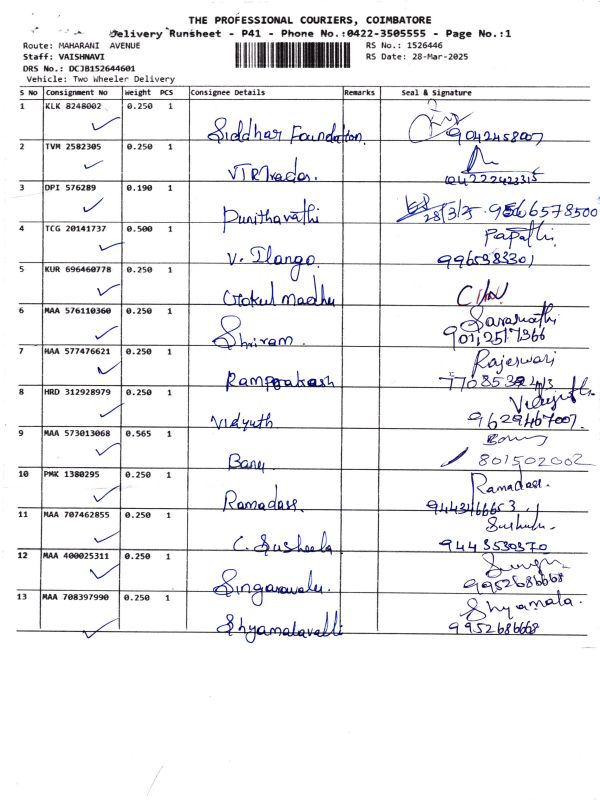 THE PROFESSIONAL COURIERS, COIMBATORE
Delivery Runsheet - P41 - Phone No.:0422-3505555 - Page No.:1
Route: MAHARANI AVENUE
RS No.: 1526446
Staff: VAISHNAVI
RS Date: 28-Mar-2025
DRS No.: DCJB152644601
Vehicle: Two Wheeler Delivery
S No Consignment No Weight PCS Consignee Details Remarks Seal & Signature
1 KLK 8248002 0.250 1
Siddhar Foundation. 9042458007
2 TVM 2582305 0.250 1
VTR Tvades. 04222423315
3 DPI 576289 0.190 1
Punithavathi 28/3/25 9566578500
4 TCG 20141737 0.500 1 Papathi
V. Ilango. 9965983301
5 KUR 696460778 0.250 1
Gokul Madhu
6 MAA 576110360 0.250 1 Saraswathi
Shriram. 9012517366
7 MAA 577476621 0.250 1 Rajeswari
Ramprakash
8 HRD 312928979 0.250 1
Vidyuth 9629467007.
9 MAA 573013068 0.565 1
801502002
10 PMK 1380295 0.250 1 Ramadass.
Ramadass. 9443466653
11 MAA 707462855 0.250 1
C. Susheela 9443530370
12 MAA 400025311 0.250 1
Singaravelu. 9952686668
13 MAA 708397990 0.250 1 Shyamala.
Shyamalavalli 9952686668